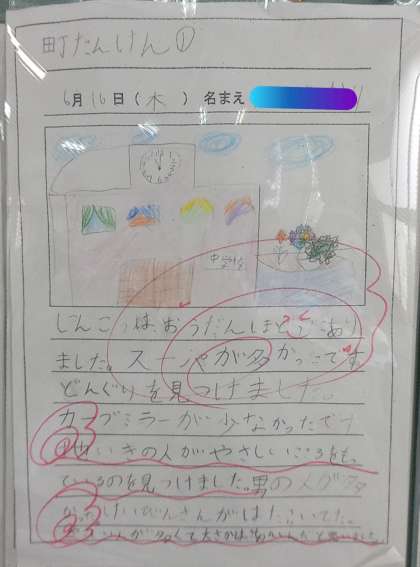 町たんけん①
6月16日(木) 名まえ
中学校
しんごうは、おうだんほどうにあり
ました。スーパーが多かったです。
どんぐりを見つけました。
カーブミラーが少なかったです
いきの人がやさしいこころをもっ
ているのを見つけました。男の人が多
かった けいびいんさんがはたらいてた。